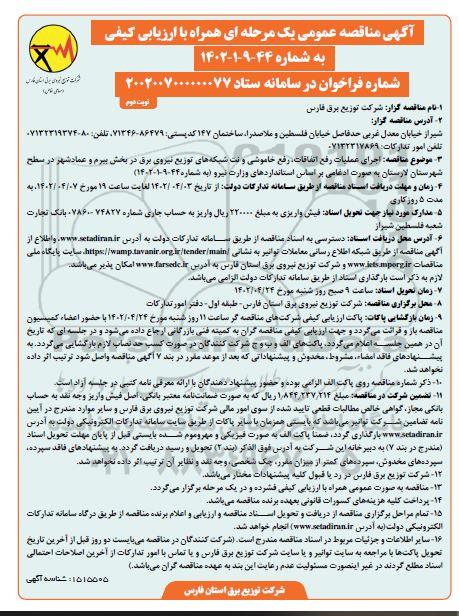 آگهی مناقصه عمومی یک مرحله ای همراه با ارزیابی کیفی
به شماره ۴۴-۹-۱-۱۴۰۲
شماره فراخوان در سامانه ستاد ۲۰۰۲۰۰۷۰۰۰۰۰۰۷۷
شرکت توزیع نیروی برق استان فارس
(سهامی خاص)
نوبت دوم
۱-نام مناقصه گزار: شرکت توزیع برق فارس
۲- آدرس مناقصه گزار:
شیراز خیابان معدل غربی حدفاصل خیابان فلسطین و ملاصدرا، ساختمان ۱۴۷ کدپستی: ۸۶۴۷۹-۷۱۳۴۶، تلفن: ۸۰-۰۷۱۳۲۳۱۹۳۷۴
تلفن امور تدارکات: ۰۷۱۳۲۳۱۷۸۶۹
۳- موضوع مناقصه: اجرای عملیات رفع اتفاقات، رفع خاموشی و نت شبکه‌های توزیع نیروی برق در بخش بیرم و عمادشهر در سطح
شهرستان لارستان به صورت ادغامی بر اساس استانداردهای وزارت نیرو (به شماره ۴۴-۹-۱-۱۴۰۲)
۴- زمان و مهلت دریافت اسناد مناقصه از طریق سامانه تدارکات دولت: از تاریخ ۱۴۰۲/۰۴/۰۳ لغایت ساعت ۱۹ مورخ ۱۴۰۲/۰۴/۰۷، به
مدت ۵ روز کاری
۵- مدارک مورد نیاز جهت تحویل اسناد: فیش واریزی به مبلغ ۲۲۰۰۰۰ ریال واریز به حساب جاری شماره ۷۴۸۲۷-۰۷۸۶۰ بانک تجارت
شعبه فلسطین شیراز
۶- آدرس محل دریافت اسناد: دسترسی به اسناد مناقصه از طریق سامانه تدارکات دولت به آدرس www.setadiran.ir، واطلاع از
آگهی مناقصه از طریق شبکه اطلاع رسانی معاملات توانیر به نشانی /https://wamp.tavanir.org.ir/tender/main، سایت پایگاه ملی
مناقصات www.iets.mporg.ir و شرکت توزیع نیروی برق استان فارس به آدرس www.farsedc.ir امکان پذیر می‌باشد.
لازم به ذکر است بارگذاری اسناد از طریق سامانه تدارکات دولت الزامی می‌باشد.
۷- زمان تحویل اسناد: ساعت ۹ صبح روز شنبه مورخ ۱۴۰۲/۰۴/۲۴
۸- محل برگزاری مناقصه: شرکت توزیع نیروی برق استان فارس- طبقه اول- دفتر امورتدارکات
۹- زمان بازگشایی پاکات: پاکت ارزیابی کیفی شرکت‌های مناقصه گر ساعت ۱۱ روز شنبه مورخ ۱۴۰۲/۰۴/۲۴ با حضور اعضاء کمیسیون
مناقصه باز و قرائت می‌گردد و جهت ارزیابی کیفی مناقصه گران به کمیته فنی بازرگانی ارجاع داده می‌شود و در جلسه ای که تاریخ
آن در همین جلسه اعلام می‌گردد، پاکت‌های الف و ب و ج شرکت کنندگان در صورت کسب حد نصاب لازم بازگشایی می‌گردد. به
پیشنهادهای فاقد امضاء، مشروط، مخدوش و پیشنهاداتی که بعد از موعد مقرر در بند ۷ آگهی مناقصه واصل شود ترتیب اثر داده
نخواهد شد.
۱۰- ذکر شماره مناقصه روی پاکت الف الزامی بوده و حضور پیشنهاد دهندگان با ارائه معرفی نامه کتبی در جلسه آزاد است.
۱۱- تضمین شرکت در مناقصه: مبلغ ۱,۸۴۴,۲۳۷,۲۱۴ ریال که به صورت ضمانت‌نامه معتبر بانکی، اصل فیش واریز وجه نقد به حساب
بانکی مجاز، گواهی خالص مطالبات قطعی تایید شده از سوی امور مالی شرکت توزیع نیروی برق فارس و سایر موارد مندرج در آیین
نامه تضامین شرکت توانیر می‌باشد که بایستی همزمان با سایر پاکات از طریق سایت سامانه تدارکات الکترونیکی دولت به آدرس
www.setadiran.ir بارگذاری گردد، ضمنا پاکت الف به صورت فیزیکی و مهروموم شده بایستی قبل از پایان مهلت تحویل اسناد
(مندرج در بند ۷) به دبیرخانه این شرکت به آدرس فوق الذکر (بند ۲) تحویل و رسید دریافت گردد. به پیشنهادهای فاقد سپرده،
سپرده‌های مخدوش، سپرده‌های کمتر از میزان مقرر، چک شخصی، وجه نقد و نظایر آن ترتیب اثر داده نخواهد شد.
۱۲- شرکت توزیع برق فارس در رد یا قبول کلیه پیشنهادات مختار می‌باشد.
۱۳- مناقصه به صورت عمومی همراه با ارزیابی کیفی فشرده و در یک مرحله برگزار می‌گردد.
۱۴- پرداخت کلیه هزینه‌های کسورات قانونی بعهده برنده مناقصه می‌باشد.
۱۵- تمام مراحل برگزاری مناقصه از دریافت و تحویل اسناد مناقصه و ارزیابی و اعلام برنده مناقصه از طریق درگاه سامانه تدارکات
الکترونیکی دولت (به آدرس www.setadiran.ir) انجام خواهد شد.
۱۶- سایر اطلاعات و جزئیات مربوط در اسناد مناقصه مندرج است. (شرکت کنندگان در مناقصه می‌بایست دو روز قبل از آخرین تاریخ
تحویل پاکت‌ها با مراجعه به سایت توانیر و یا سایت شرکت توزیع برق فارس و یا تماس با امور تدارکات از آخرین اصلاحات احتمالی
اسناد مطلع گردند در غیر اینصورت مسئولیت عدم رعایت این بند به عهده مناقصه گران می‌باشد.)
شناسه آگهی: ۱۵۱۵۵۰۵
شرکت توزیع برق استان فارس